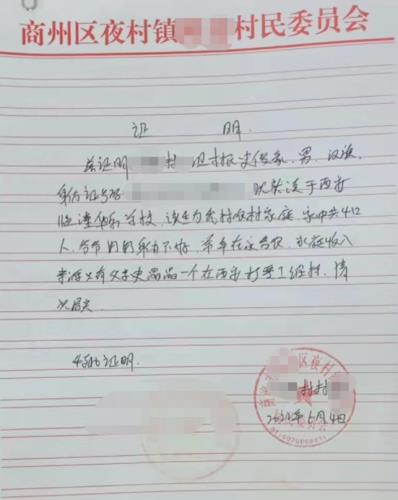 商州区夜村镇村民委员会
证 明
兹证明村 男，汉族，
身份证号码 就读于西安
临潼学校，该生为我村农村家庭，家中共4口
人，爷爷奶奶身体不好，常年在家务农，家庭收入
来源只有父亲史晶晶一个在西安打零工维持，情
况属实
特此证明．
区夜村
村村
年6月4日